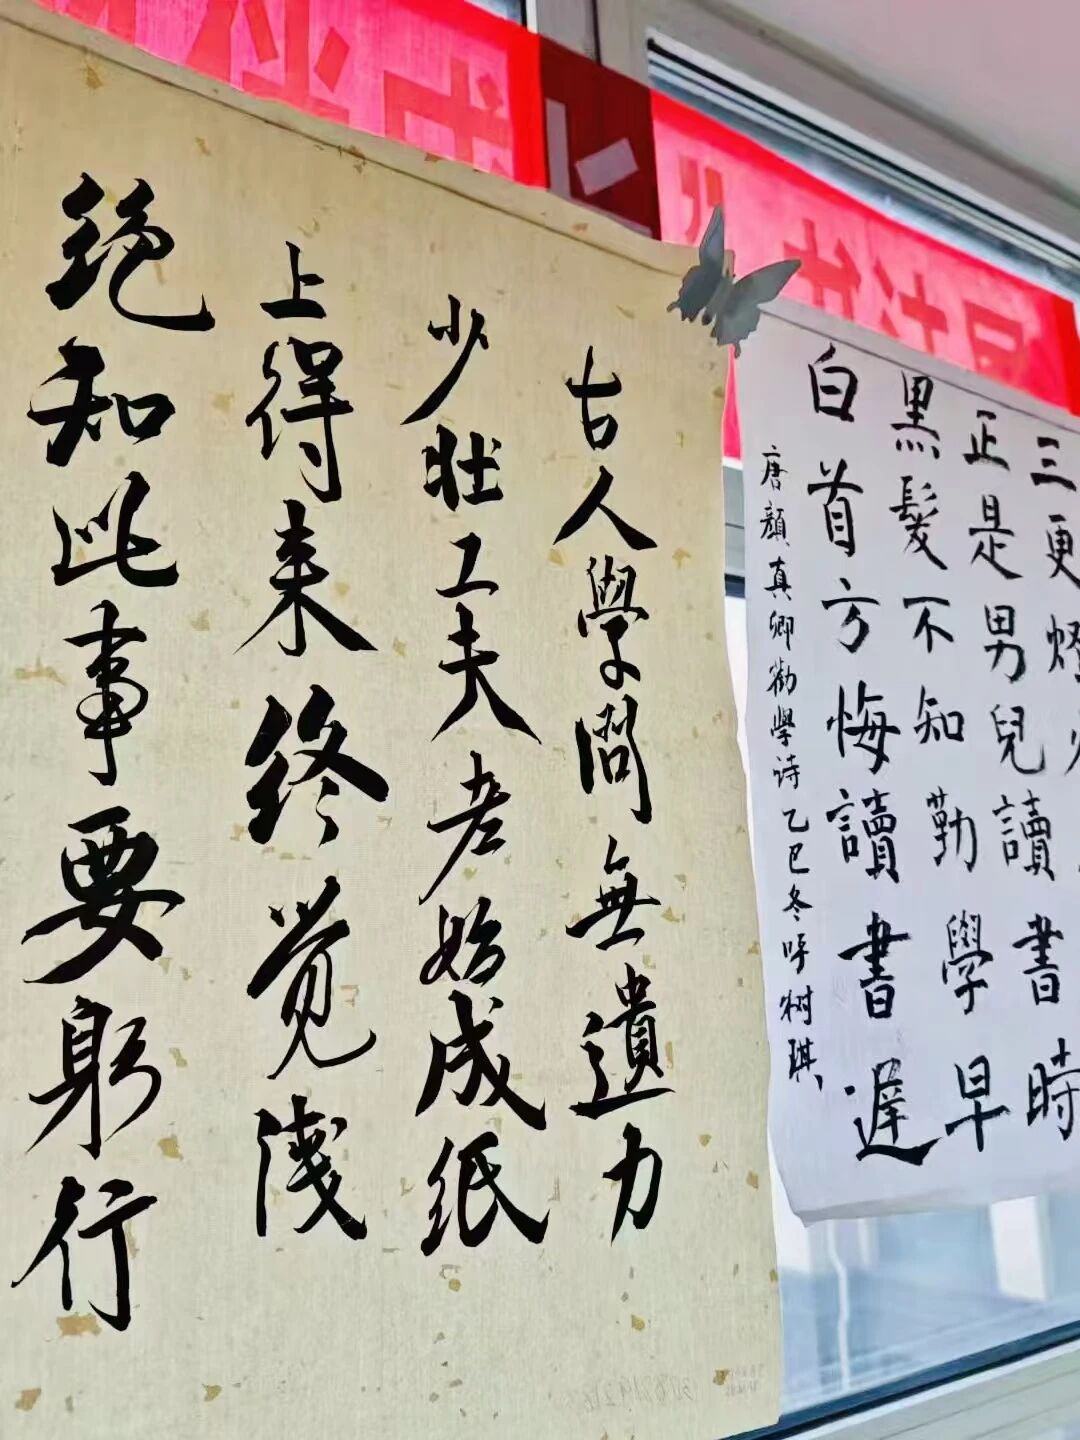 三更燈
正是男兒讀書時
黑髮不知勤學早
白首方悔讀書遲
唐顔真卿勸學诗乙巳冬呼树琪
古人學問無遺力
少壯工夫老始成纸
上得来终觉淺
绝知此事要躬行